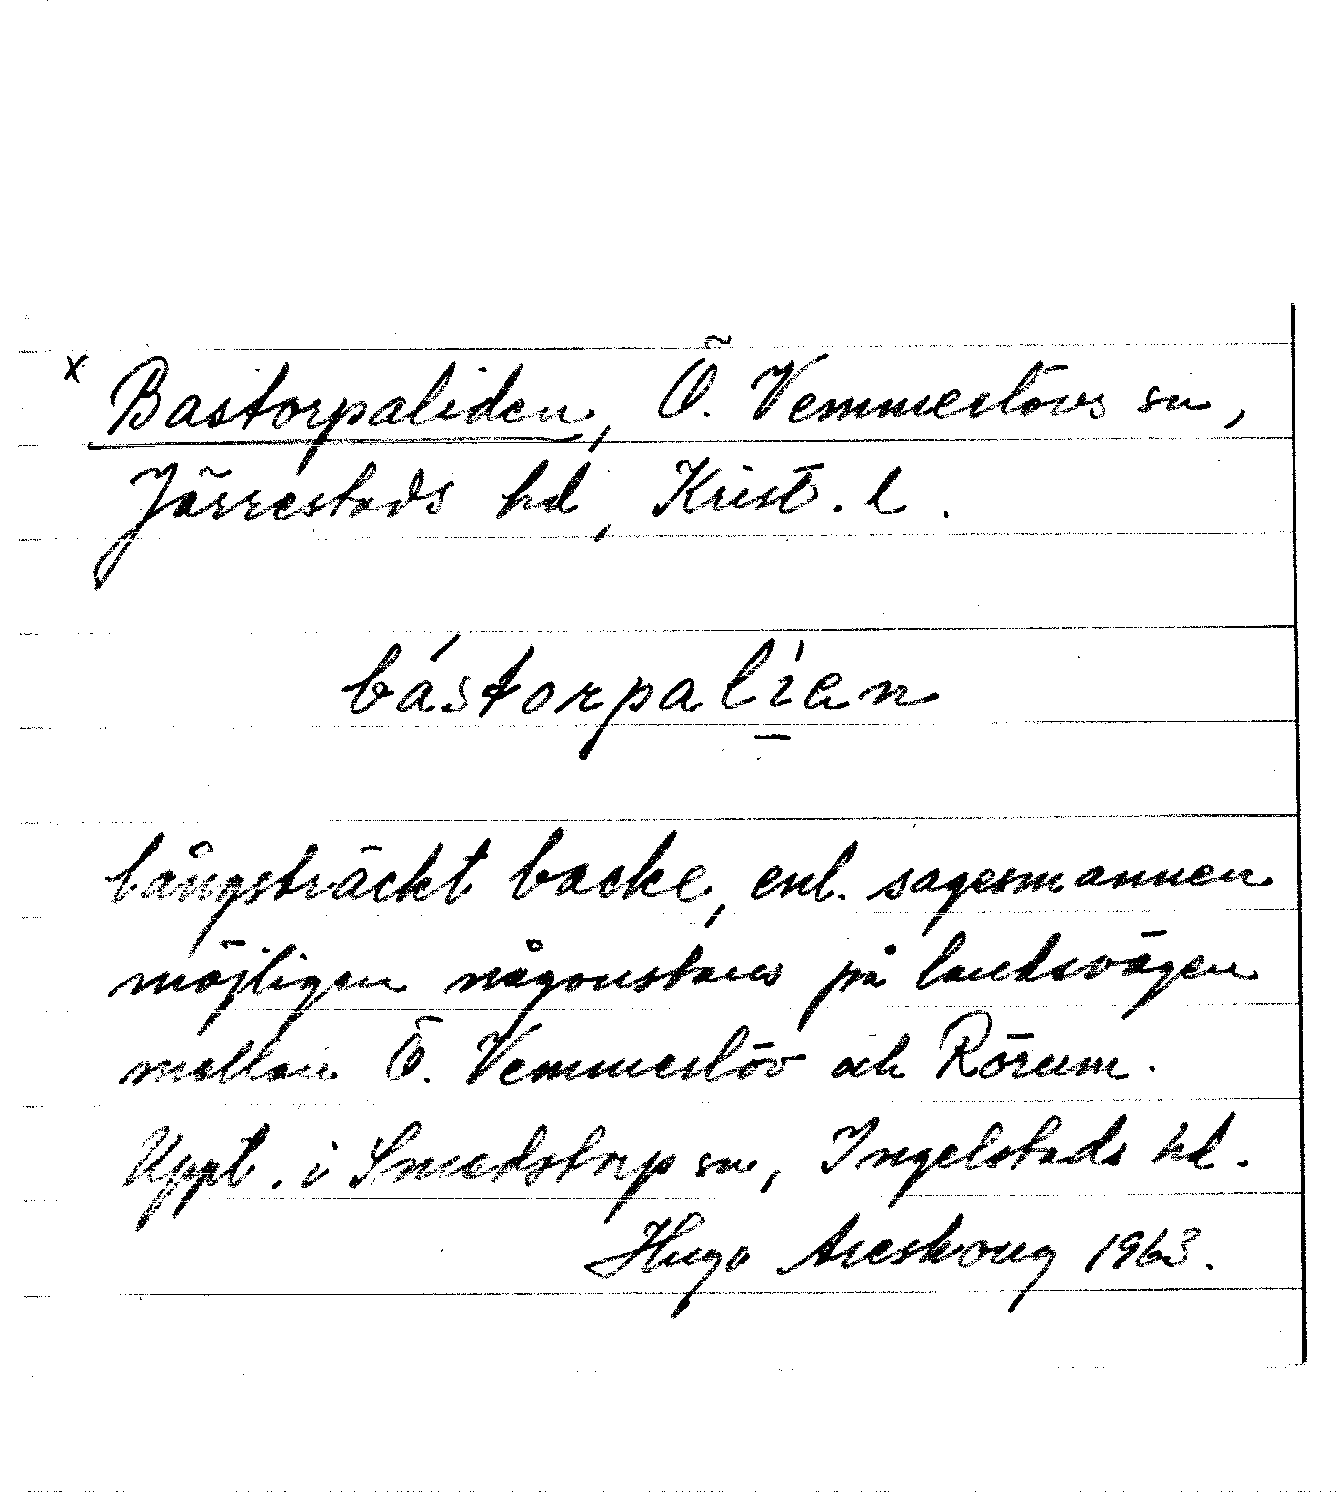 x Bastorpaliden, Ö. Vemmerlövs sn,
Järrestads hd, Krist. l.
bástorpalìen
långsträckt backe, enl. sagesmannen
möjligen någonstans på landsvägen
mellan Ö. Vemmerlöv och Rörum.
Uppt. i Smedstorp sn, Ingelstads hd.
Hugo Areskoug 1963.